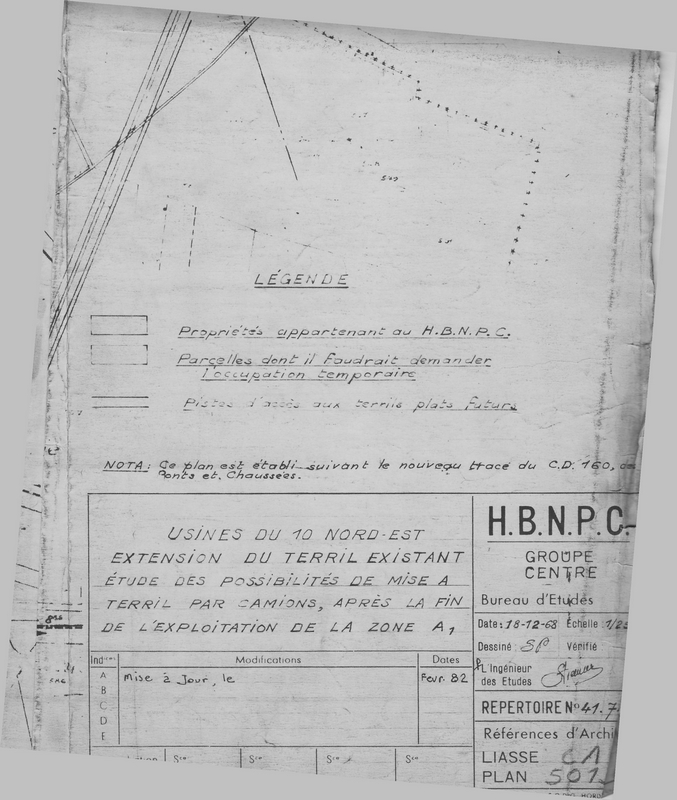 LÉGENDE
Propriétés appartenant au H.B.N.P.C.
Parcelles dont il faudrait demander
l'occupation temporaire
Pistes d'accès aux terrils plats futurs
NOTA: Ce plan est établi suivant le nouveau tracé du C.D. 160, des
Ponts et Chaussées.
USINES DU 10 NORD-EST
EXTENSION DU TERRIL EXISTANT
ÉTUDE DES POSSIBILITÉS DE MISE A
TERRIL PAR CAMIONS, APRÈS LA FIN
DE L'EXPLOITATION DE LA ZONE A1
H.B.N.P.C.
GROUPE
CENTRE
Bureau d'Etudes
Date: 18-12-68 Echelle: 1/25
Dessiné: SP Vérifié
L'Ingénieur
des Etudes
REPERTOIRE N° 41.7
Références d'Archi
LIASSE CA
PLAN 501
Indices Modifications Dates
A Mise à Jour, le Fevr. 82
B
C
D
E